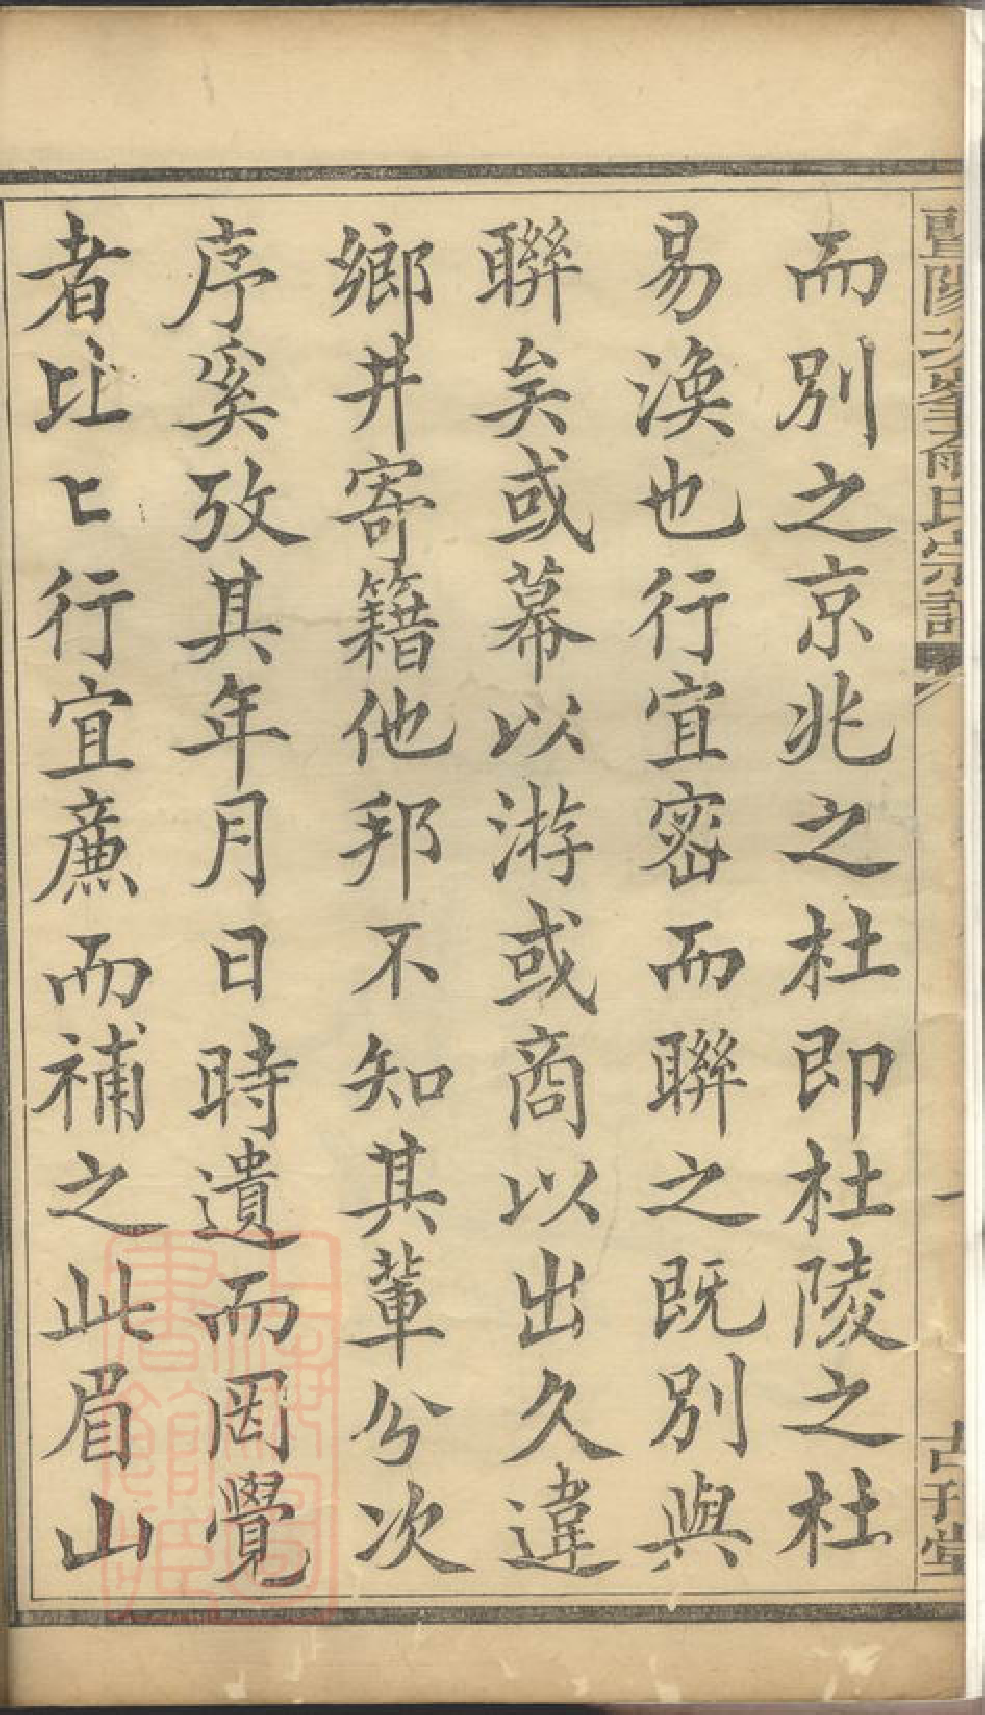 暨陽次峯俞氏宗譜
一
古孔堂
而別之京兆之杜即杜陵之杜
易渙也行宜密而聯之既別與
聯矣或幕以游或商以出久違
鄉井寄籍他邦不知其輩分次
序奚攷其年月日時遺而罔覺
者比〻行宜廉而補之此眉山